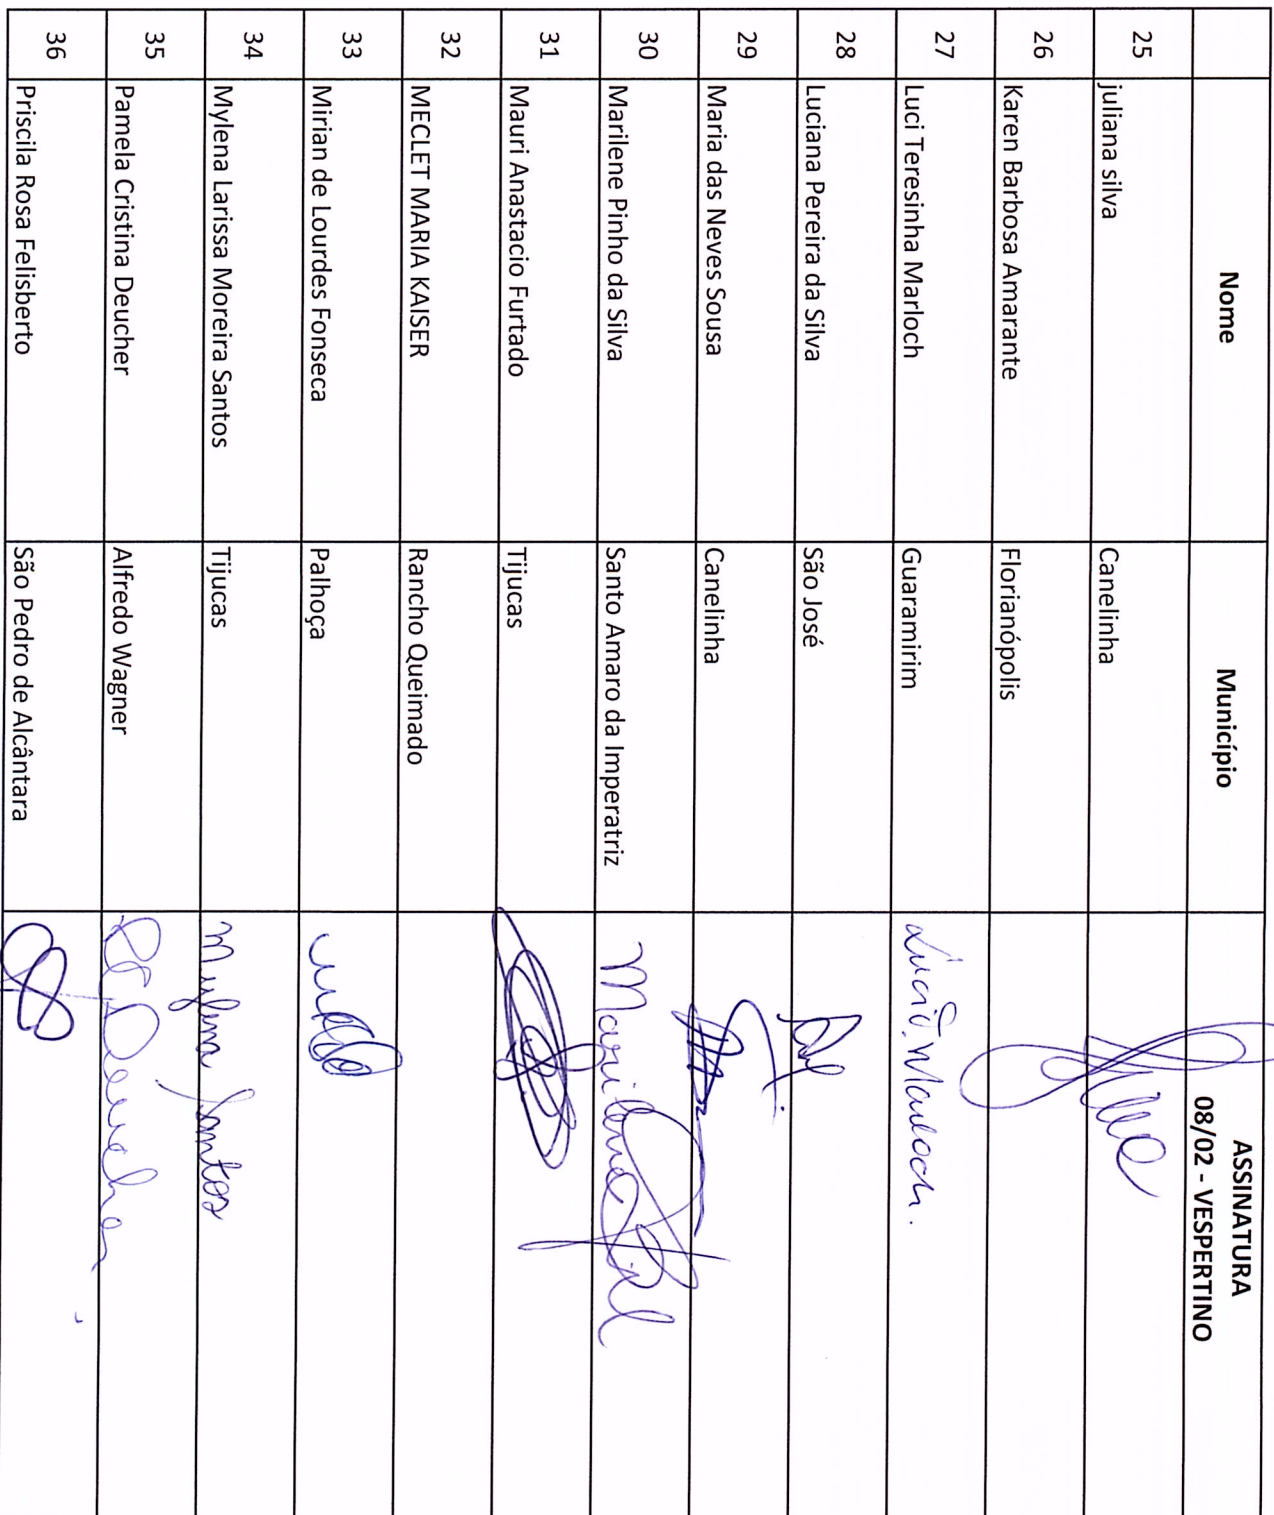 Nome Município ASSINATURA
08/02 - VESPERTINO
25 juliana silva Canelinha
26 Karen Barbosa Amarante Florianópolis
27 Luci Teresinha Marloch Guaramirim Luci T. Marloch.
28 Luciana Pereira da Silva São José
29 Maria das Neves Sousa Canelinha
30 Marilene Pinho da Silva Santo Amaro da Imperatriz Marilene
31 Mauri Anastacio Furtado Tijucas
32 MECLET MARIA KAISER Rancho Queimado
33 Mirian de Lourdes Fonseca Palhoça
34 Mylena Larissa Moreira Santos Tijucas Mylena Santos
35 Pamela Cristina Deucher Alfredo Wagner Deucher
36 Priscila Rosa Felisberto São Pedro de Alcântara